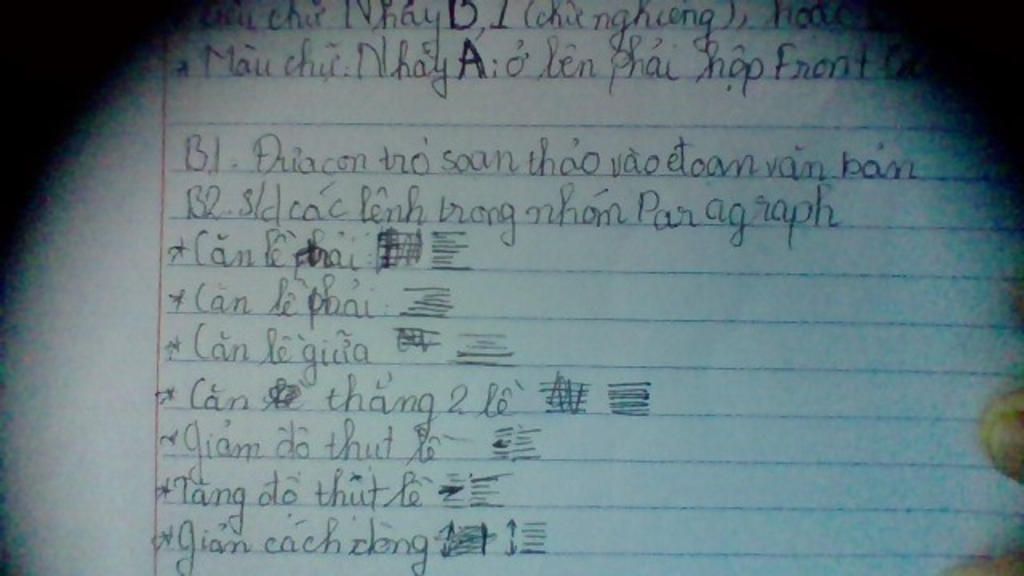 chữ Nhấy B, I (chữ nghiêng), hoặc
* Màu chữ: Nhấy A: ở lên phải hộp Front
B1. Đưa con trỏ soạn thảo vào đoạn văn bản
B2. S/d các lệnh trong nhóm Paragraph
* Căn lề trái:
* Căn lề phải:
* Căn lề giữa
* Căn thẳng 2 lề
* Giảm độ thụt lề
* Tăng độ thụt lề
* Giãn cách dòng